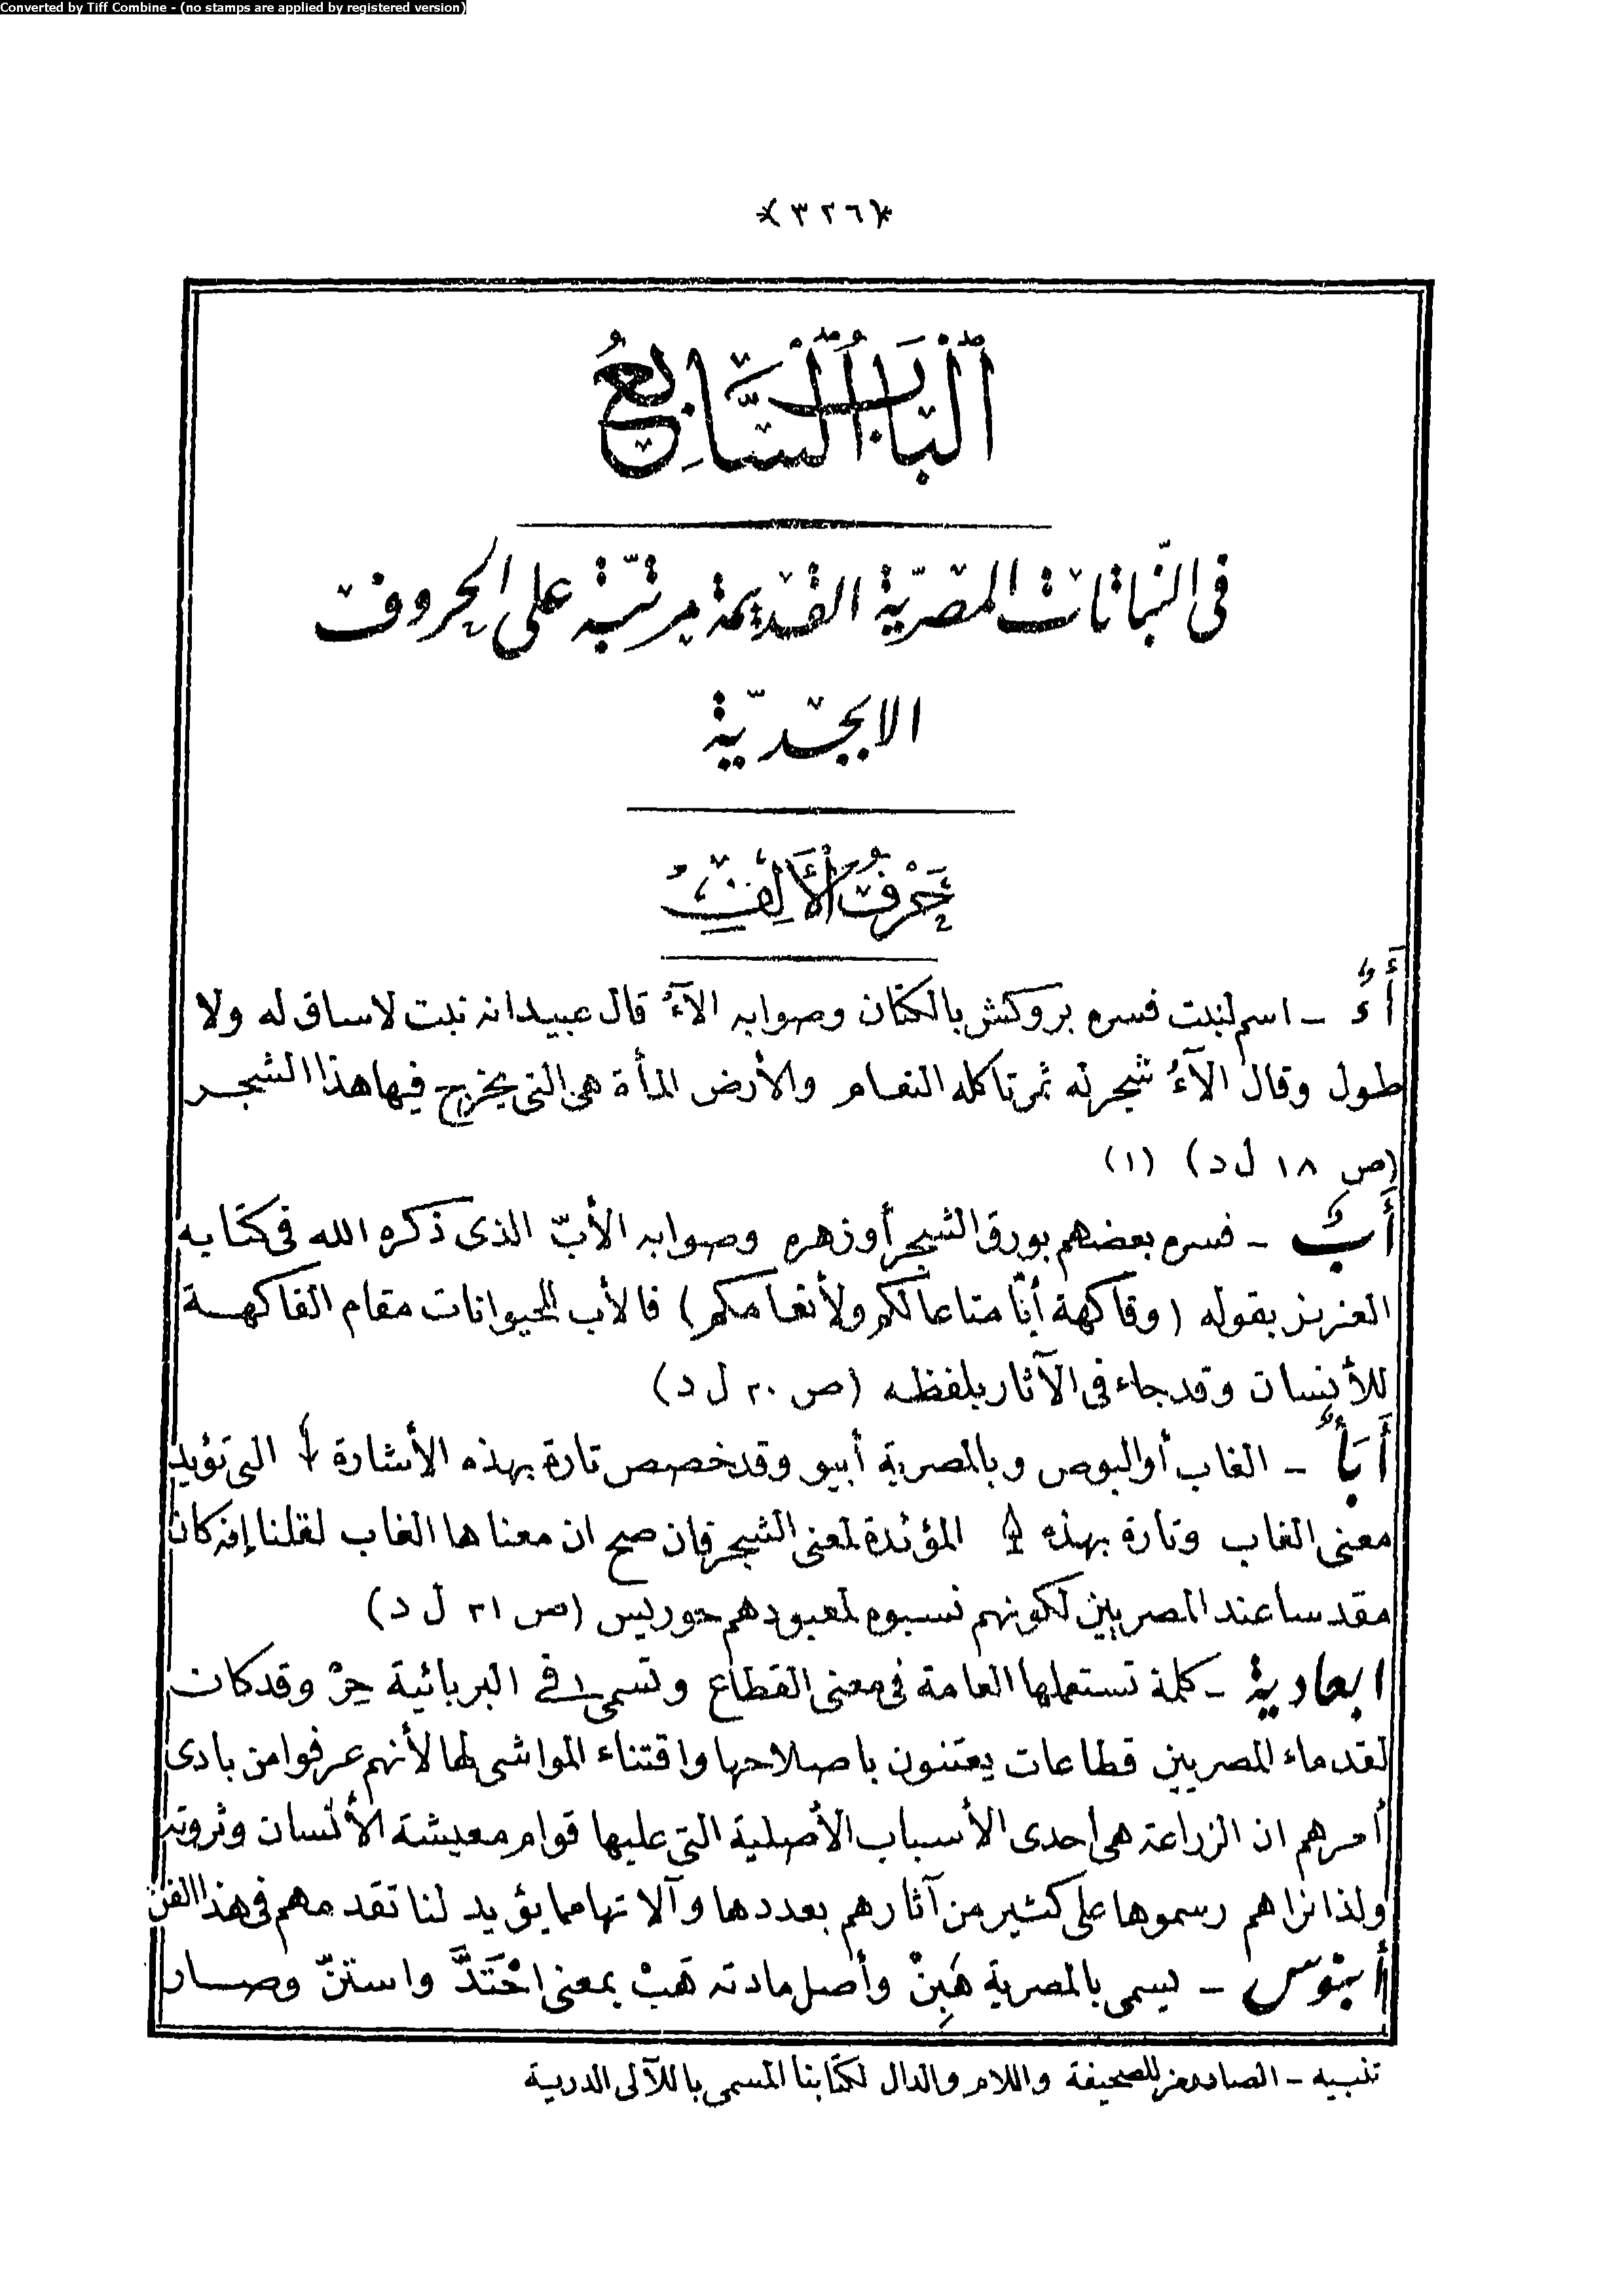 Converted by Tiff Combine - (no stamps are applied by registered version)
﴿٣٢٦﴾
اَلْبَابُ السَّابِعُ
فى النّباتات المصريّة القديمة مرتّبة على الحروف
الابجديّة
حَرْفُ الْأَلِفِ
أَأُ – اسم لنبت فسره بروكش بالكتان وصوابه الآءُ قال عبيد انه نبت لاساق له ولا
طول وقال الآءُ شجر له ثمر تاكله النعام والأرض المأة هى التى يخرج فيها هذا الشجر
(ص ١٨ ل د) (١)
أَبُ – فسره بعضهم بورق الشجر أو زهره وصوابه الأبّ الذى ذكره الله فى كتابه
العزيز بقوله (وفاكهة أبّا متاعا لكم ولأنعامكم) فالأب للحيوانات مقام الفاكهة
للأنسان وقد جاء فى الآثار بلفظه (ص ٢٠ ل د)
أَبَأُ – الغاب أو البوص وبالمصرية أبيو وقد خصص تارة بهذه الأشارة التى تؤيد
معنى الغاب وتارة بهذه المؤيدة لمعنى الشجر فان صح ان معناها الغاب لقلنا إنه كان
مقدسا عند المصريين لكونهم نسبوه لمعبودهم حوريس (ص ٢١ ل د)
ابعادية – كلمة تستعملها العامة فى معنى القطاع وتسمى فى البربائية حِرْ وقد كان
لقدماء المصريين قطاعات يعتنون باصلاحها واقتناء المواشى لها لأنهم عرفوا من بادى
أمرهم ان الزراعة هى احدى الأسباب الأصلية التى عليها قوام معيشة الأنسان وثروته
ولذا نراهم رسموها على كثير من آثارهم بعددها وآلاتها مما يؤيد لنا تقدمهم فى هذا الفن
أبنوس – يسمى بالمصرية هَبِنْ وأصل مادته هَبْ بمعنى احْتَدَّ واستنّ وصار
تنبيه – الصاد رمز للصحيفة واللام والدال لكتابنا المسمى باللآلى الدرية